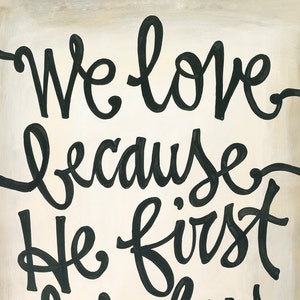 We love
because
He first